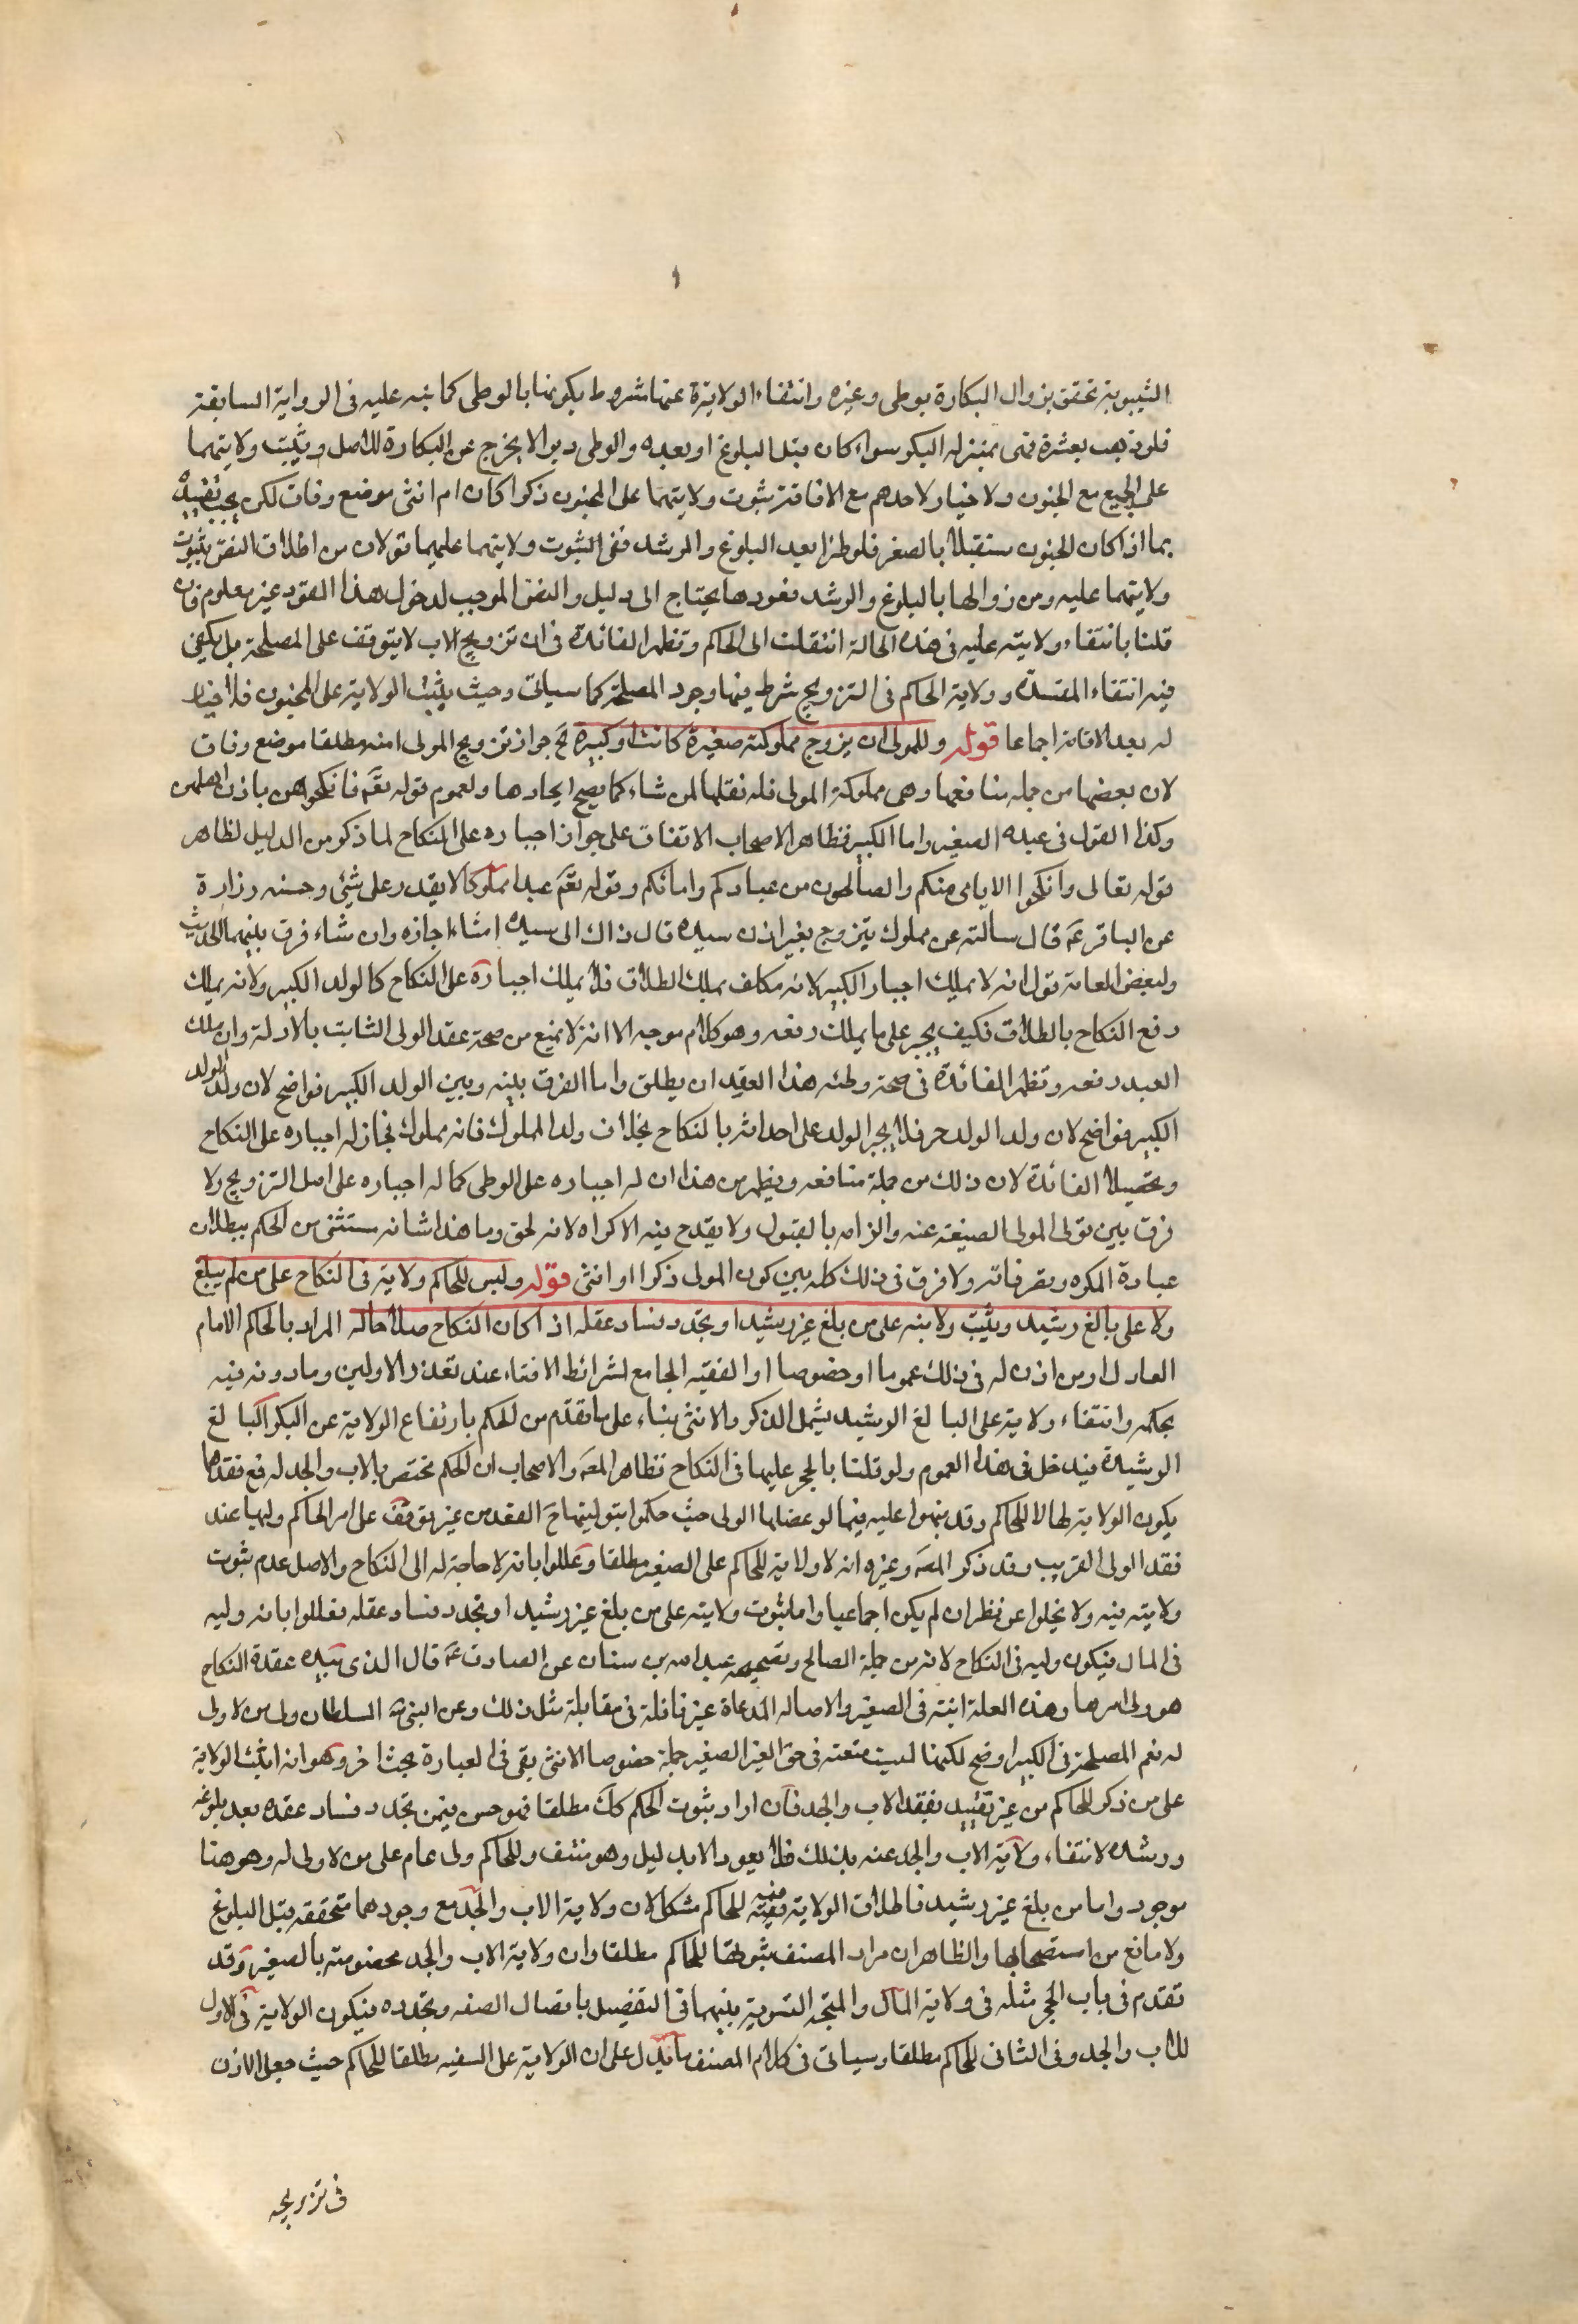 الثيبوبة تتحقق بزوال البكارة بوطى وغيره وانتفاء الولاية عنها مشروط بكونها بالوطى كما نبه عليه فى الرواية السابقة
فلو ذهب بعثرة فهى بمنزلة البكر سواء كان قبل البلوغ او بعده والوطى دبرا لا يخرج عن البكارة للاصل ويثبت ولايتهما
على الجميع مع الجنون ولا خيار لاحدهم مع الافاقة ثبوت ولايتهما على المجنون ذكرا كان ام انثى موضع وفاق لكن يجب تقييده
بما اذا كان الجنون مستقبلا بالصغر فلو طرا بعد البلوغ والرشد ففى الثبوت ولايتهما عليهما قولان من اطلاق النص بثبوت
ولايتهما عليه ومن زوالها بالبلوغ والرشد فعودها يحتاج الى دليل والنص الموجب لدخول هذا الفرد غير معلوم فان
قلنا بانتفاء ولايته عليه فى هذه الحالة انتقلت الى الحاكم وتظهر الفائدة فى ان تزويج الاب لا يتوقف على المصلحة بل يكفى
فيه انتفاء المفسدة وولاية الحاكم فى التزويج شرط فيها وجود المصلحة كما سياتى وحيث يثبت الولاية على المجنون فلا خيار
له بعد الافاقة اجماعا قوله وللمولى ان يزوج مملوكته صغيرة كانت او كبيرة الخ جواز تزويج المولى امته مطلقا موضع وفاق
لان بعضها من جملة منافعها وهى مملوكة المولى فله نقلها لمن شاء كما يصح ايجارها ولعموم قوله تعَم فانكحوهن باذن اهلهن
وكذا القول فى عبده الصغير واما الكبير فظاهر الاصحاب الاتفاق على جواز اجباره على النكاح لما ذكر من الدليل لظاهر
قوله تعالى وانكحوا الايامى منكم والصالحين من عبادكم وامائكم وقوله تعَم عبدا مملوكا لا يقدر على شئى وحسنه زرارة
عن الباقر عَم قال سالته عن مملوك يتزوج بغير اذن سيده قال ذاك الى سيده ان شاء اجازه وان شاء فرق بينهما الحديث
ولبعض العامة قول انه لا يملك اجبار الكبير لانه مكلف يملك الطلاق فلا يملك اجباره على النكاح كالولد الكبير ولانه يملك
رفع النكاح بالطلاق فكيف يجبر على ما يملك رفعه وهو كلام موجه الا انه لا يمنع من صحة عقد الولى الثابت بالادلة وان ملك
العبد رفعه وتظهر الفائدة فى صحة وطئه هذا العقد ان يطلق واما الفرق بينه وبين الولد الكبير فواضح لان ولد الولد
الكبير فواضح لان ولد الولد حر فلا يجبر الولد على احداثه بالنكاح بخلاف ولد المملوك فانه مملوك فجاز له اجباره على النكاح
وتحصيلا الفائدة لان ذلك من جملة منافعه ويظهر من هذا ان له اجباره على الوطى كما له اجباره على اصل التزويج ولا
فرق بين تولى المولى الصيغة عنه والزامه بالقبول ولا يقدح فيه الاكراه لانه لحق وما هذا شانه مستثنى من الحكم ببطلان
عبارة المكره وتصرفاته ولا فرق فى ذلك كله بين كون المولى ذكرا او انثى قوله وليس للحاكم ولاية فى النكاح على من لم يبلغ
ولا على بالغ رشيد ويثبت ولايته على من بلغ غير رشيد او تجدد فساد عقله اذا كان النكاح صلاحا له المراد بالحاكم الامام
العادل او من اذن له فى ذلك عموما او خصوصا او الفقيه الجامع لشرائط الافتاء عند تعذر الاولين وما دونه فيه
بحكمه وانتفاء ولايته على البالغ الرشيد يشمل الذكر والانثى بناء على ما تقدم من الحكم بارتفاع الولاية عن البكر البالغ
الرشيدة فيدخل فى هذا العموم ولو قلنا بالحجر عليها فى النكاح فظاهر المصَ والاصحاب ان الحكم مختص بالاب والجد له فمع فقدهما
يكون الولاية لها لا للحاكم وقد نبهوا عليه فيما لو عضلها الولى حيث حكموا بتوليتها حَ العقد من غير توقف على امر الحاكم ولهيا عند
فقد الولى القريب وقد ذكر المصَ وغيره انه لا ولاية للحاكم على الصغير مطلقا وعللوا بانه لا حاجة له الى النكاح والاصل عدم ثبوت
ولايته فيه ولا يخلوا عن نظر ان لم يكن اجماعيا واما ثبوت ولايته على من بلغ غير رشيد او تجدد فساد عقله فعللوا بانه وليه
فى المال فيكون وليه فى النكاح لانه من جملة الصالح وبصحيحه عبد الله بن سنان عن الصادق عَم قال الذى بيده عقدة النكاح
هو ولى امرها وهذه العلة اتية فى الصغير والاصاله المدعاة غير قائلة فى مقابلة مثل ذلك وعن النبى صَ السلطان ولى من لا ولى
له نعم المصلحة فى الكبير اوضح لكنها ليست منعته فى حق الغير الصغير جملة خصوصا الانثى بقى فى العبارة بحث اخر وهو انه اثبت الولاية
على من ذكر للحاكم من غير تقييد بفقد الاب والجد فان اراد ثبوت الحكم كَكَ مطلقا فهو حسن فيمن تجدد فساد عقله بعد بلوغه
ورشده لانتفاء ولاية الاب والجد عنه بذلك فلا يعود الا بدليل وهو منتف وللحاكم ولى عام على من لا ولى له وهو هنا
موجود واما من بلغ غير رشيد فاطلاق الولاية فيه للحاكم مشكل لان ولاية الاب والجد مع وجودهما متحققة قبل البلوغ
ولا مانع من استصحابها والظاهر ان مراد المصنف ثبوتها للحاكم مطلقا وان ولاية الاب والجد مخصوصة بالصغير وقد
تقدم فى باب الحجر مثله فى ولاية المال والمتجه التسوية بينهما فى التفصيل باتصال السفه وتجدده فيكون الولاية فى الاول
للاب والجد وفى الثانى للحاكم مطلقا وسياتى فى كلام المصنف ما يدل على ان الولاية على السفيه مطلقا للحاكم حيث جعل الاذن
فى تزويجه